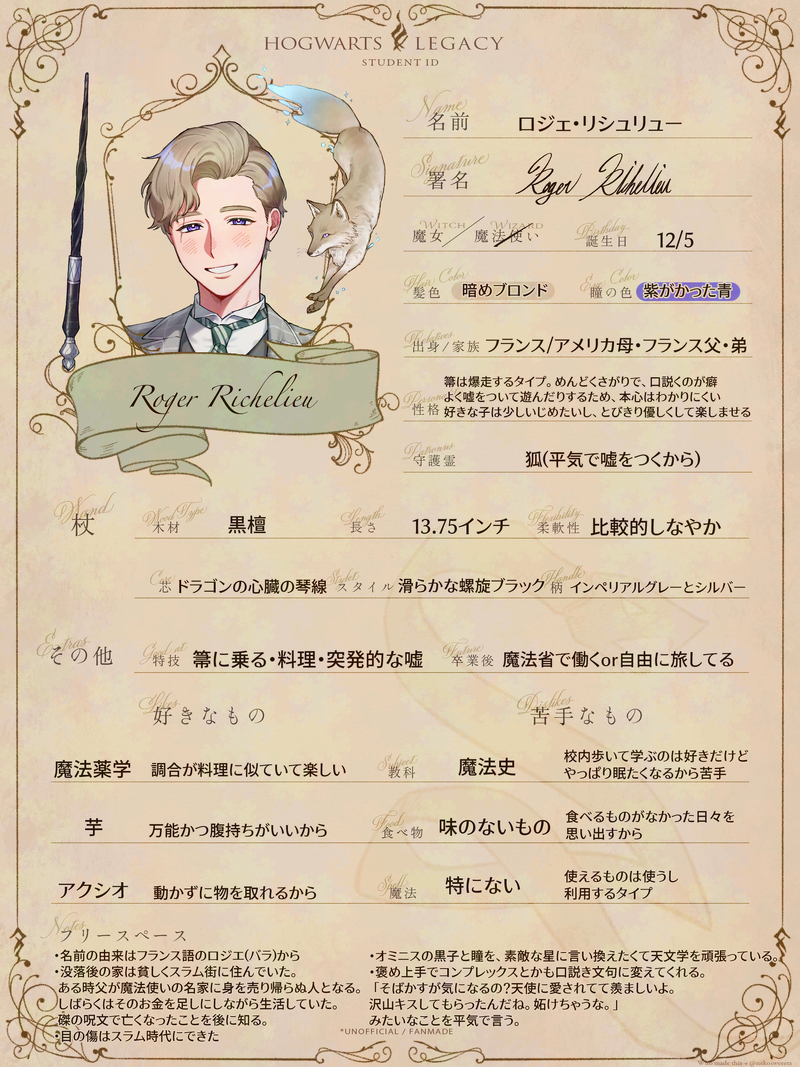 HOGWARTS LEGACY
STUDENT ID
Name
名前 ロジェ・リシュリュー
Signature
署名 Roger Richelieu
WITCH WIZARD Birthday
魔女/魔法使い 誕生日 12/5
Hair Color Eye Color
髪色 暗めブロンド 瞳の色 紫がかった青
出身/家族 フランス/アメリカ母・フランス父・弟
性格
箒は爆走するタイプ。めんどくさがりで、口説くのが癖
よく嘘をついて遊んだりするため、本心はわかりにくい
好きな子は少しいじめたいし、とびきり優しくして楽しませる
Patronus
守護霊 狐(平気で嘘をつくから)
Roger Richelieu
Wand Wood Type Length Flexibility
杖 木材 黒檀 長さ 13.75インチ 柔軟性 比較的しなやか
Core Style Handle
芯 ドラゴンの心臓の琴線 スタイル 滑らかな螺旋ブラック 柄 インペリアルグレーとシルバー
Extras Good at Future
その他 特技 箒に乗る・料理・突発的な嘘 卒業後 魔法省で働くor自由に旅してる
Likes Dislikes
好きなもの 苦手なもの
Subject
魔法薬学 調合が料理に似ていて楽しい 教科 魔法史 校内歩いて学ぶのは好きだけど
やっぱり眠たくなるから苦手
Food
芋 万能かつ腹持ちがいいから 食べ物 味のないもの 食べるものがなかった日々を
思い出すから
Spell
アクシオ 動かずに物を取れるから 魔法 特にない 使えるものは使うし
利用するタイプ
Notes
フリースペース
・名前の由来はフランス語のロジエ(バラ)から
・没落後の家は貧しくスラム街に住んでいた。
ある時父が魔法使いの名家に身を売り帰らぬ人となる。
しばらくはそのお金を足しにしながら生活していた。
磔の呪文で亡くなったことを後に知る。
・目の傷はスラム時代にできた
・オミニスの黒子と瞳を、素敵な星に言い換えたくて天文学を頑張っている。
・褒め上手でコンプレックスとかも口説き文句に変えてくれる。
「そばかすが気になるの?天使に愛されてて羨ましいよ。
沢山キスしてもらったんだね。妬けちゃうな。」
みたいなことを平気で言う。
*UNOFFICIAL / FANMADE